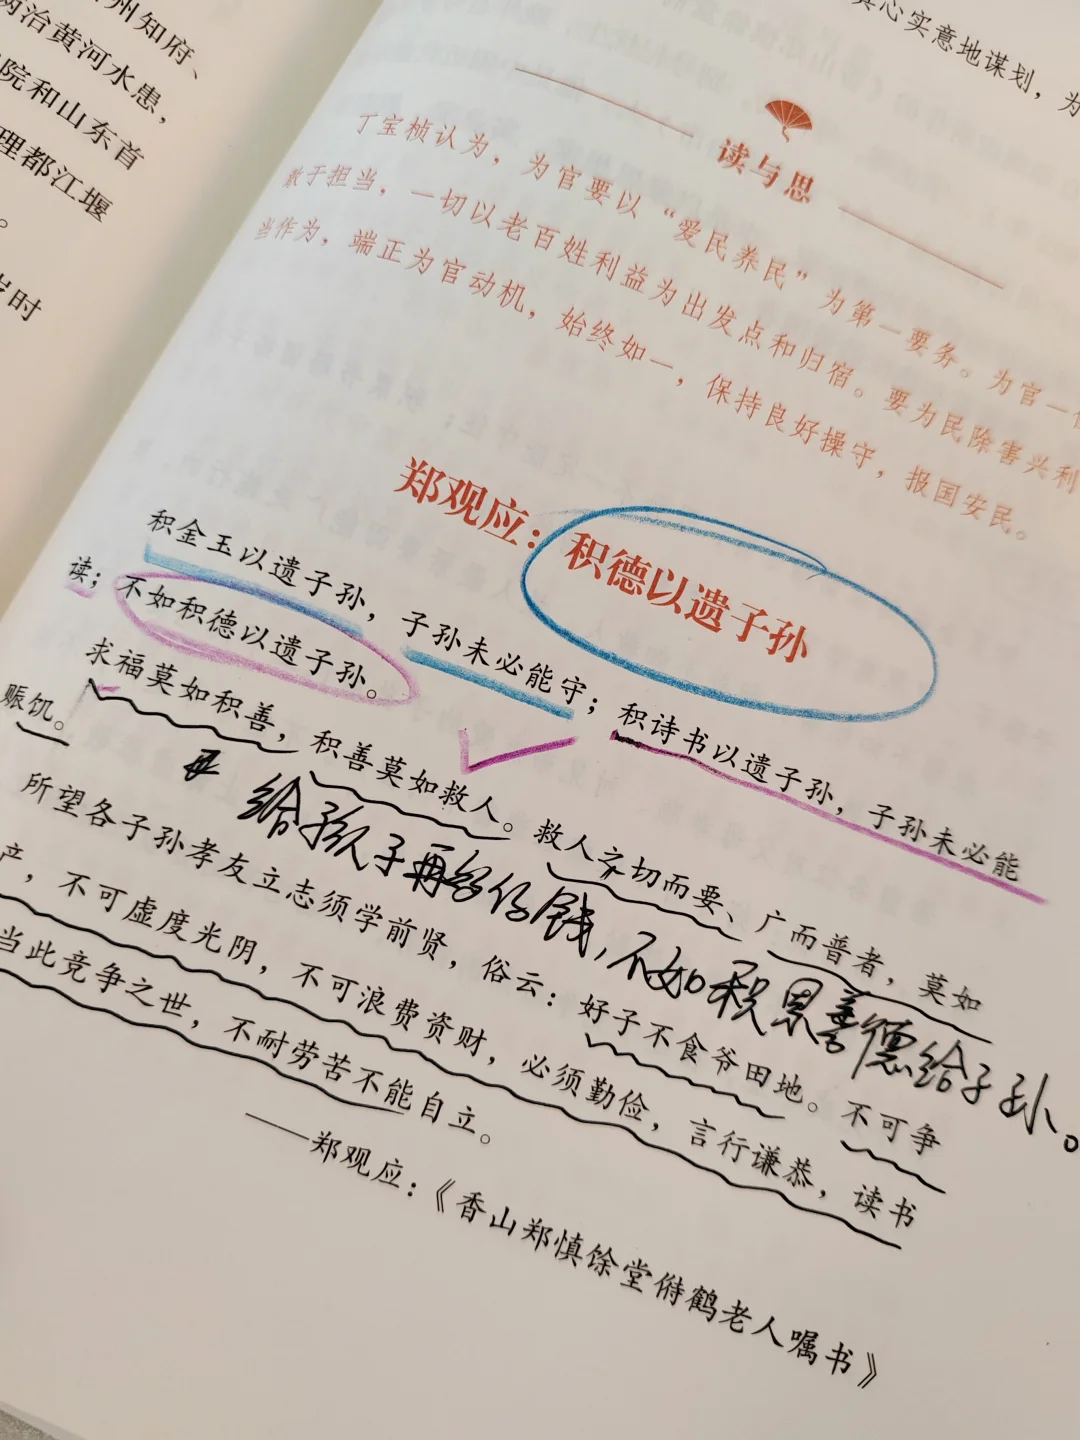 州知府、
治黄河水患，
院和山东首
理都江堰
。
时
真心实意地谋划，为
读与思
丁宝桢认为，为官要以“爱民养民”为第一要务。为官一任
敢于担当，一切以老百姓利益为出发点和归宿。要为民除害兴利
当作为，端正为官动机，始终如一，保持良好操守，报国安民。
郑观应：积德以遗子孙
积金玉以遗子孙，子孙未必能守；积诗书以遗子孙，子孙未必能
读；不如积德以遗子孙。
求福莫如积善，积善莫如救人。救人之切而要、广而普者，莫如
赈饥。
给孩子再多的钱，不如积累善德给子孙。
所望各子孙孝友立志须学前贤，俗云：好子不食爷田地。不可争
产，不可虚度光阴，不可浪费资财，必须勤俭，言行谦恭，读书
当此竞争之世，不耐劳苦不能自立。
——郑观应：《香山郑慎馀堂侍鹤老人嘱书》